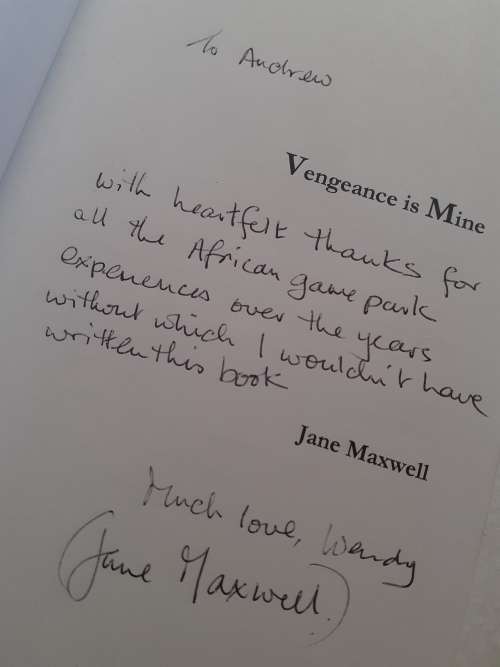 To Andrew
Vengeance is Mine
with heartfelt thanks for
all the African game park
experiences over the years
without which I wouldn't have
written this book
Jane Maxwell
Much love, Wendy
(Jane Maxwell.)